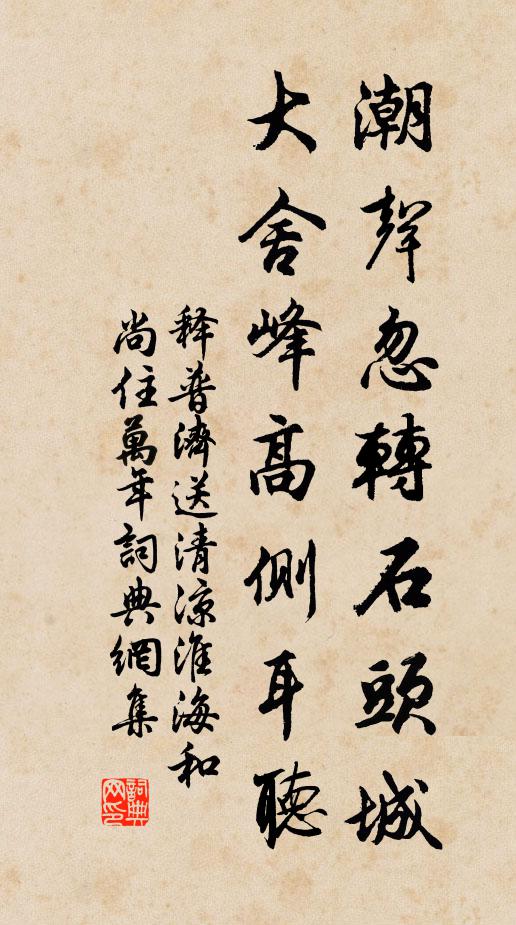 潮聲忽轉石頭城
大舍峰高側耳聽
释普濟送清涼淮海和
尚住萬年詞典網集
詞典網印